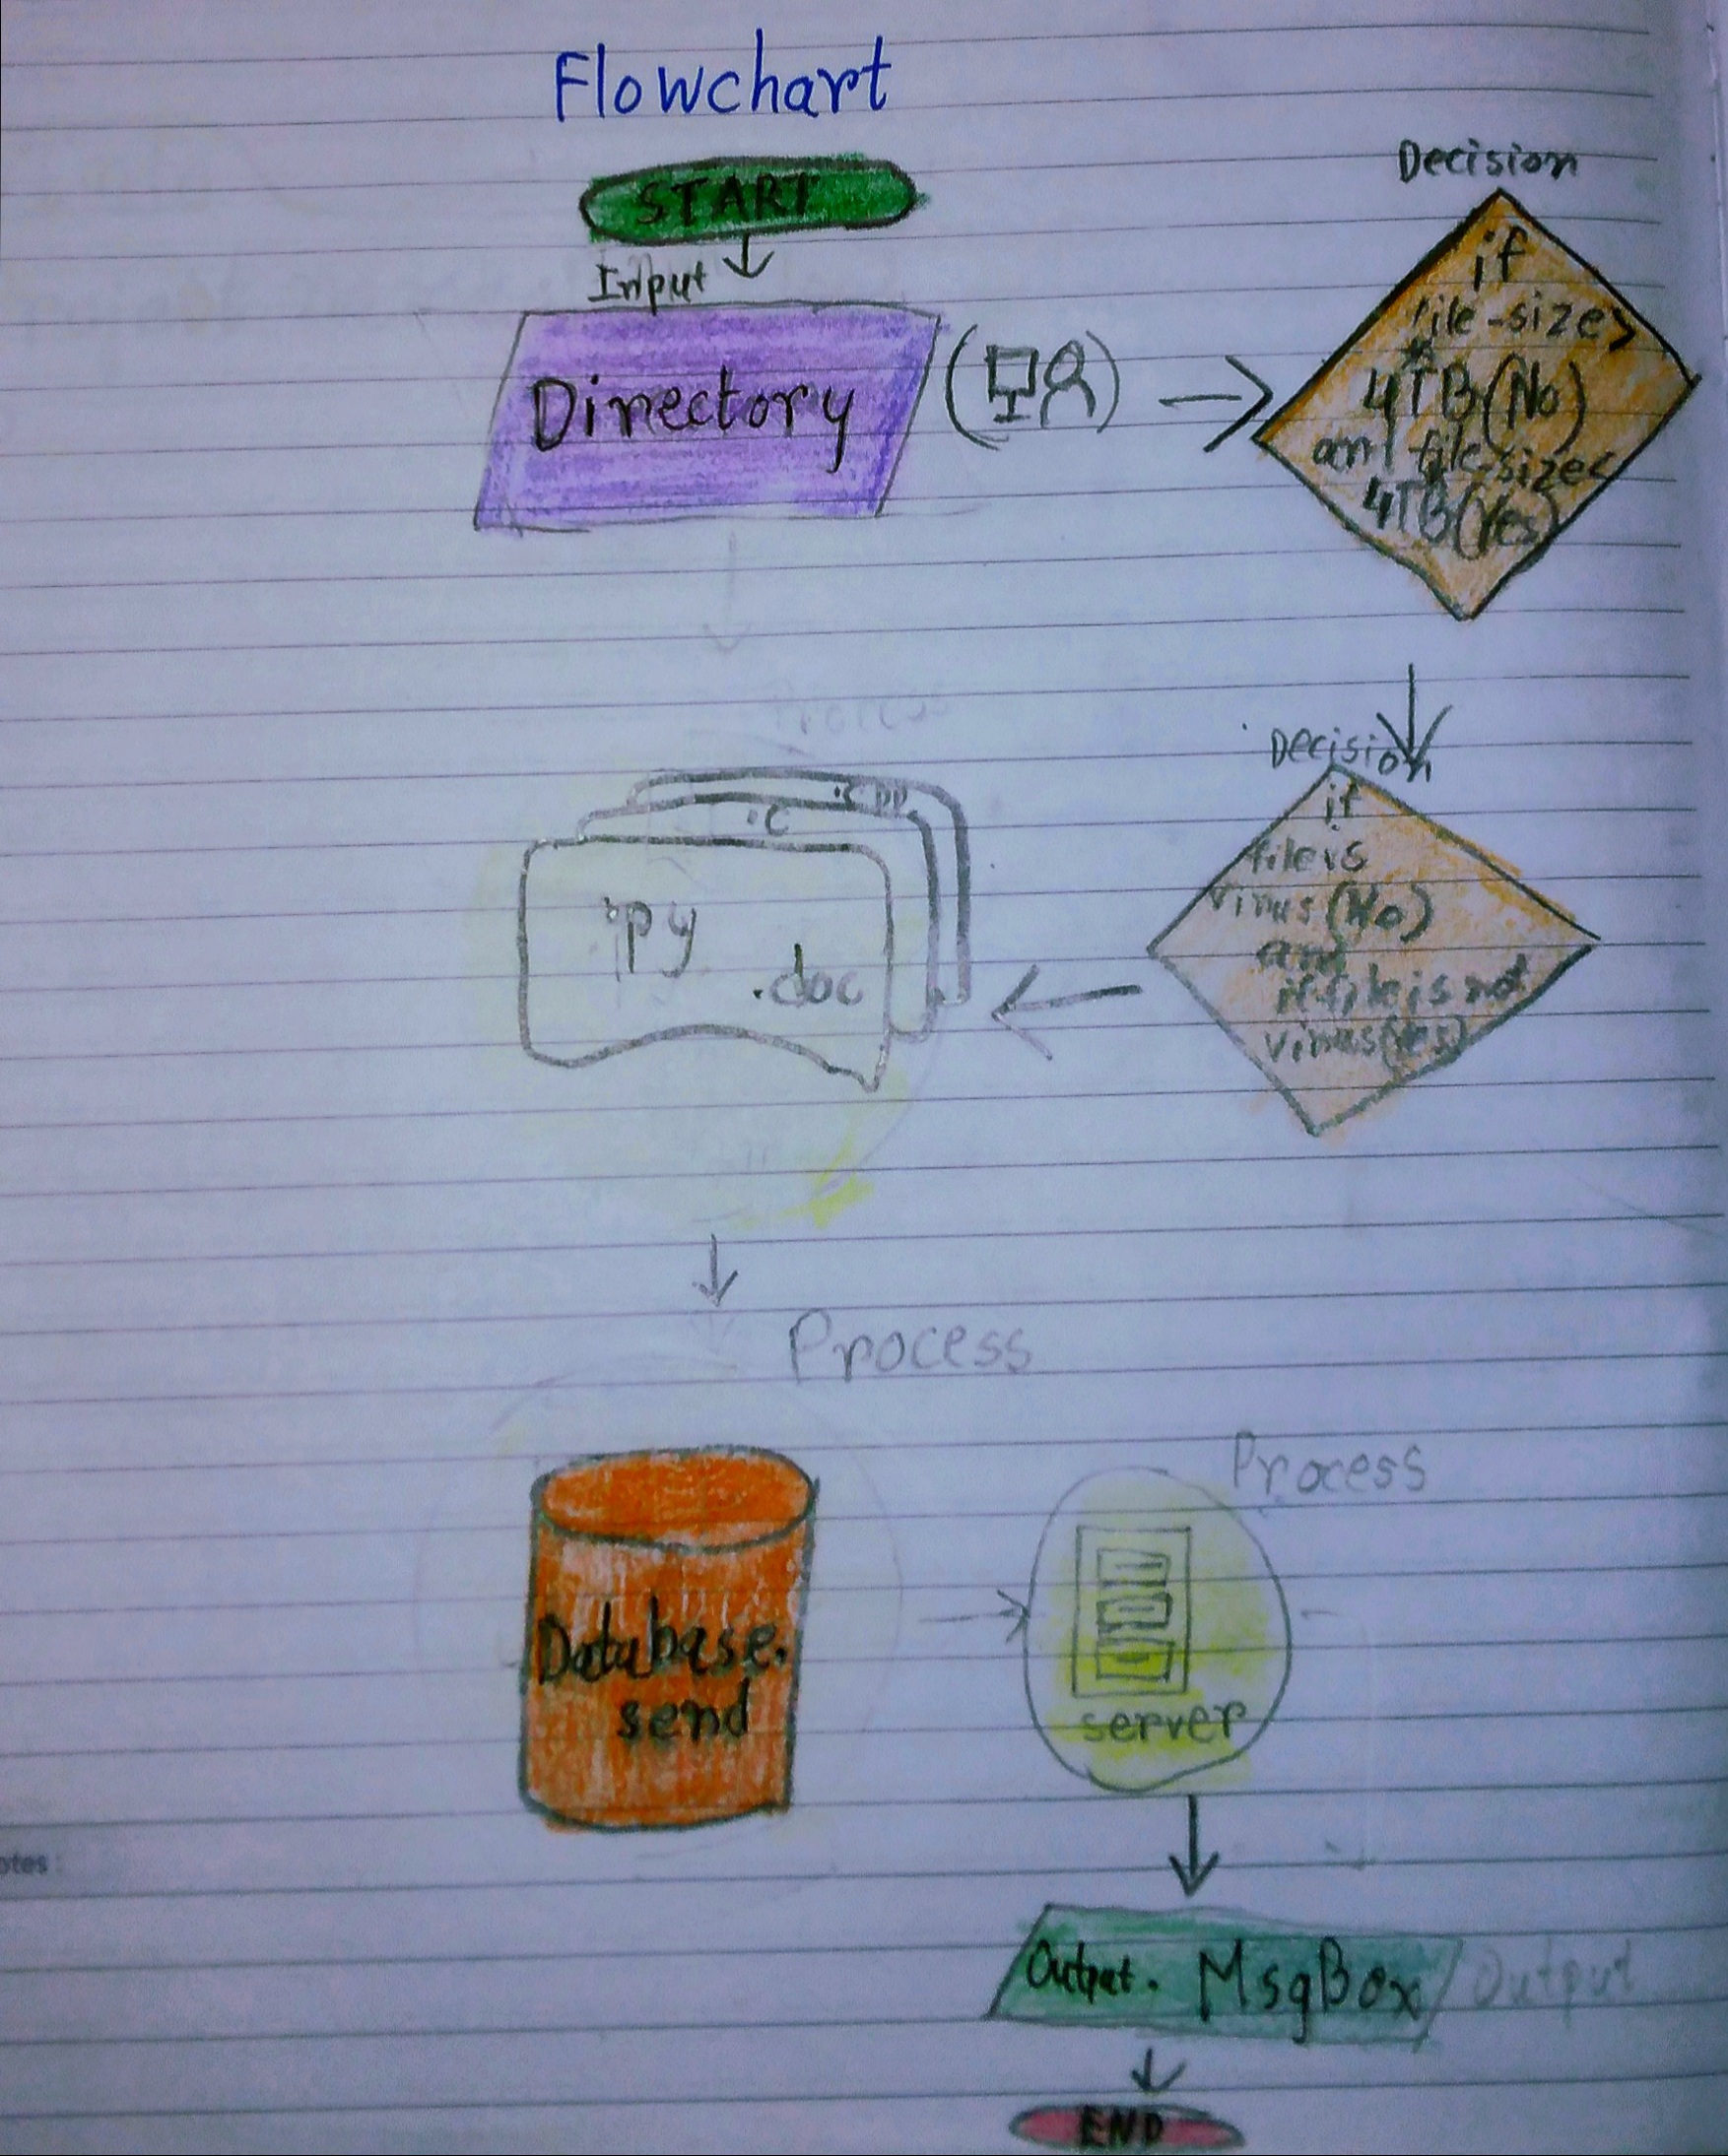 Flowchart
START
Input
Directory
Decision
if
file-size>
4TB(No)
and file-size<
4TB(Yes)
Decision
if
file is
virus(No)
and
if file is not
virus(Yes)
Process
.cpp
.c
.py
.doc
Process
Database.
send
Process
server
Output. MsgBox
Output
END
otes :